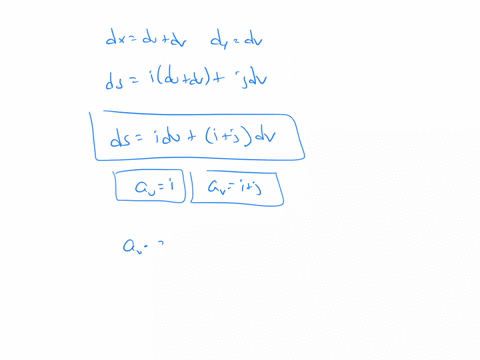 dx = du + dv dy = dv
ds = i(du + dv) + j dv
ds = i du + (i + j) dv
a_u = i a_v = i + j